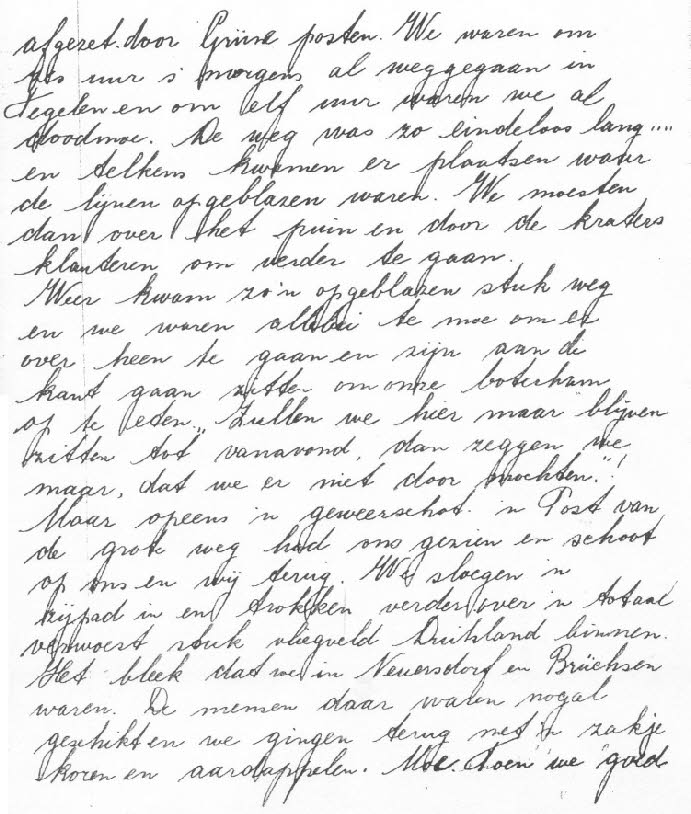 afgezet door Grüne posten. We waren om
zes uur 's morgens al weggegaan in
Tegelen en om elf uur waren we al
doodmoe. De weg was zo eindeloos lang....
en telkens kwamen er plaatsen waar
de lijnen opgeblazen waren. We moesten
dan over het puin en door de kraters
klauteren om verder te gaan.
Weer kwam zo'n opgeblazen stuk weg
en we waren allebei te moe om er
over heen te gaan en zijn aan de
kant gaan zitten om onze boterham
op te eten. „Zullen we hier maar blijven
zitten tot vanavond, dan zeggen we
maar, dat we er niet door mochten."!
Maar opeens 'n geweerschot. 'n Post van
de grote weg had ons gezien en schoot
op ons en wij terug. We sloegen 'n
zijpad in en trokken verder over 'n totaal
verwoest stuk vliegveld Duitsland binnen.
Het bleek dat we in Neuersdorf en Brüchsen
waren. De mensen daar waren nogal
geschikt en we gingen terug met 'n zakje
koren en aardappelen. Moe. Toen we goed